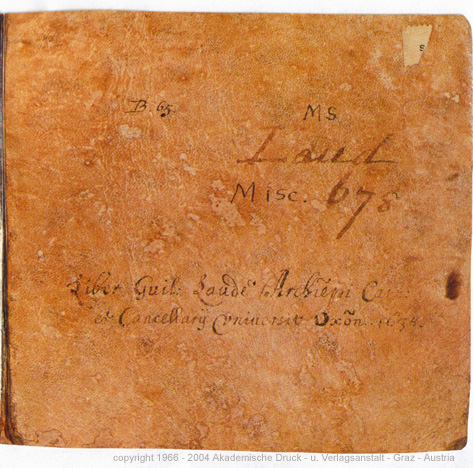 8
B. 65
MS
Laud
Misc. 678
Liber Guil: Laude Archiepi Cant:
et Cancellarij Universit Oxōn. 1634.
copyright 1966 - 2004 Akademische Druck - u. Verlagsanstalt - Graz - Austria